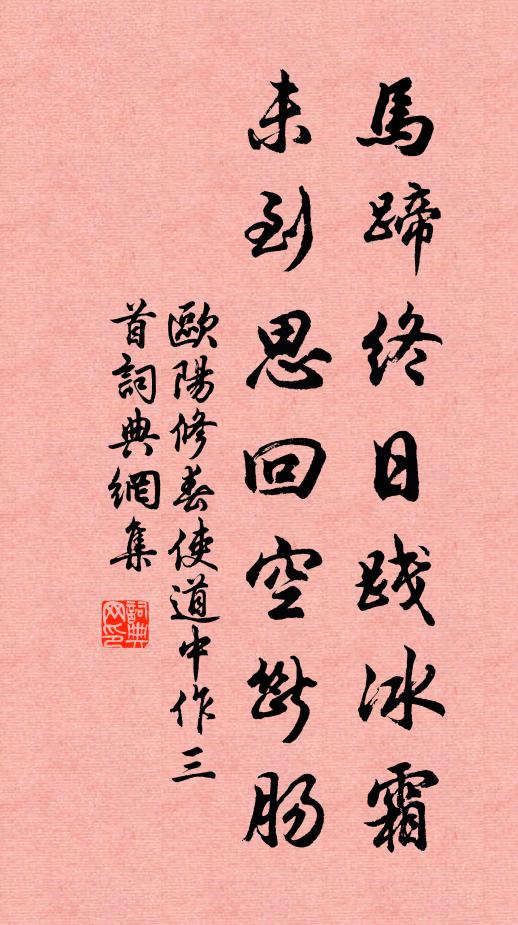 馬蹄終日踐冰霜
未到思回空斷腸
歐陽修奉使道中作三
首詞典網集
詞典
网印